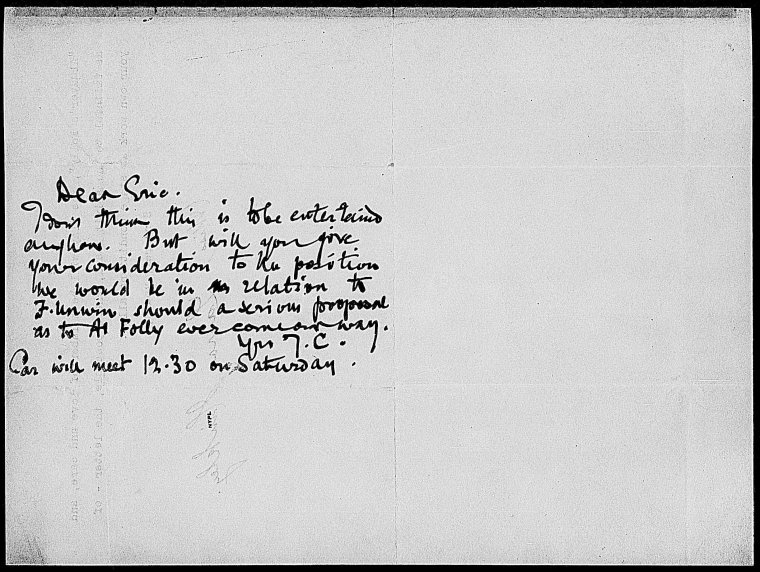 Dear Eric.
I don't think this is to be entertained
anyhow. But will you give
your consideration to the position
we would be in in relation to
F. Unwin should a serious proposal
as to Al Folly ever come our way.
Yrs J.C.
Car will meet 12.30 on Saturday.
NYPL